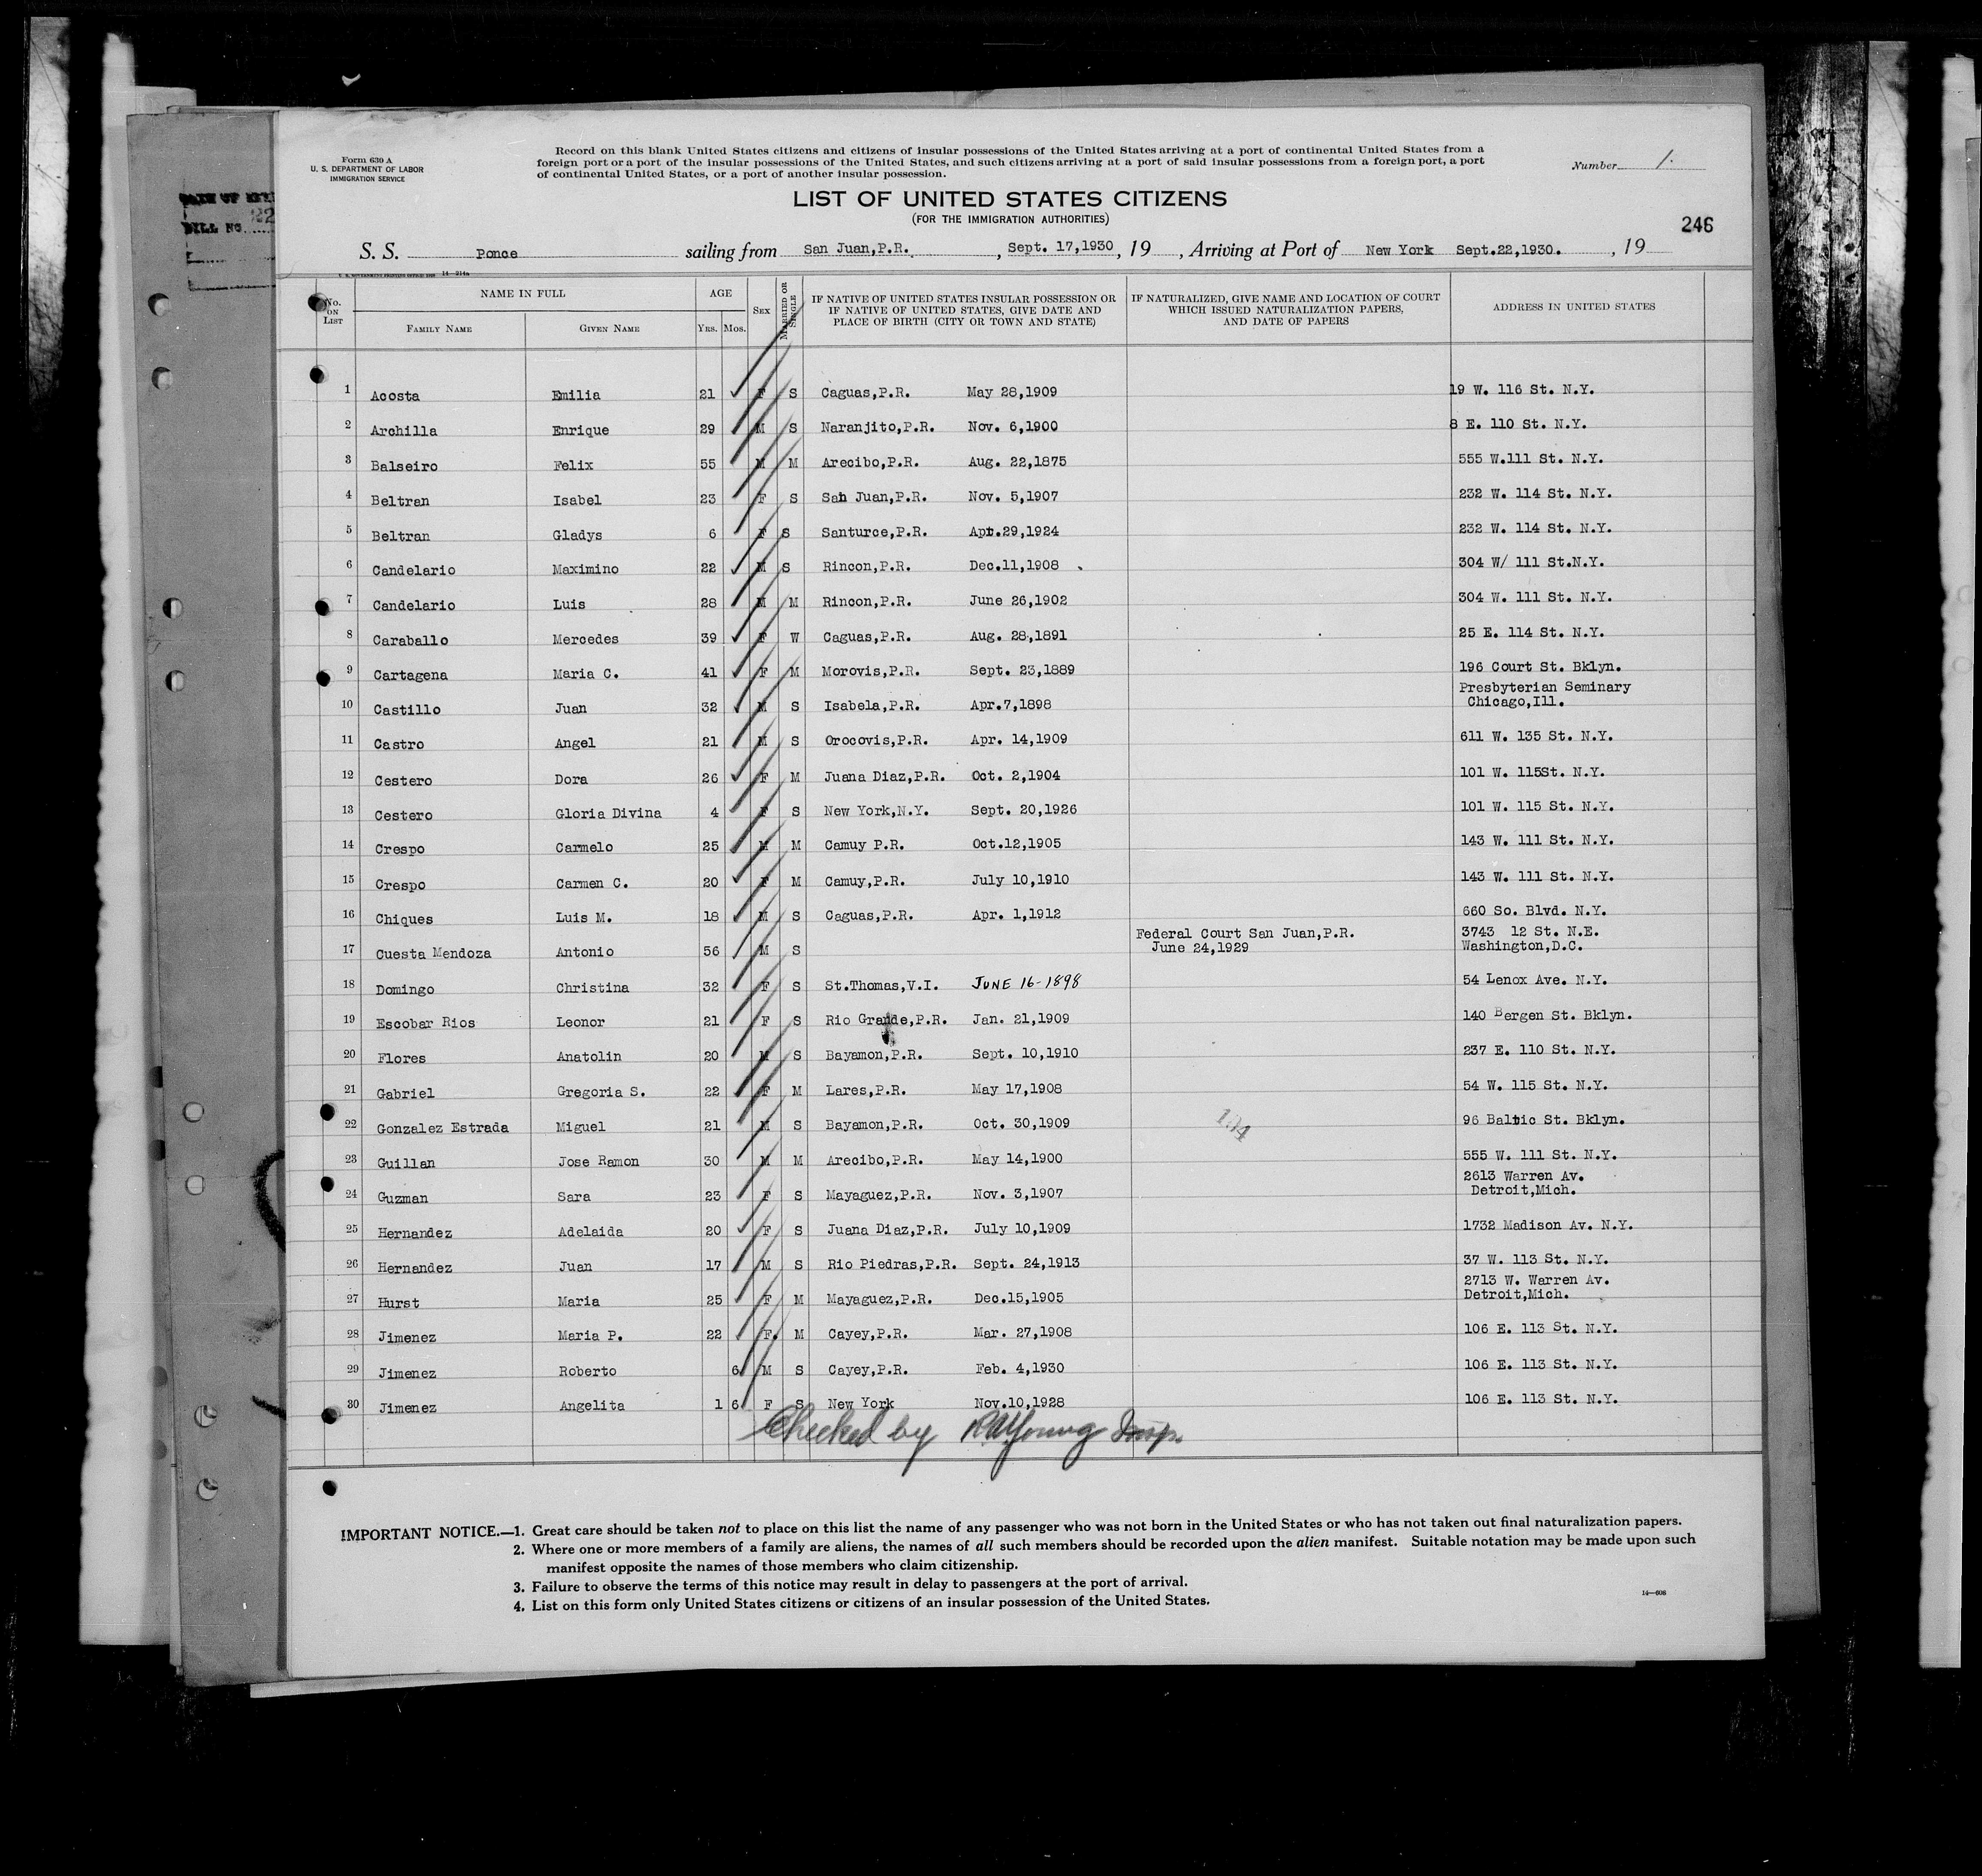 Form 630 A
U. S. DEPARTMENT OF LABOR
IMMIGRATION SERVICE
Record on this blank United States citizens and citizens of insular possessions of the United States arriving at a port of continental United States from a
foreign port or a port of the insular possessions of the United States, and such citizens arriving at a port of said insular possessions from a foreign port, a port
of continental United States, or a port of another insular possession.
Number 1.
LIST OF UNITED STATES CITIZENS
(FOR THE IMMIGRATION AUTHORITIES)
246
BILL NO.
S. S. Ponce sailing from San Juan,P.R. , Sept. 17,1930 , 19 , Arriving at Port of New York Sept.22,1930. , 19
No. ON LIST NAME IN FULL AGE SEX MARRIED OR SINGLE IF NATIVE OF UNITED STATES INSULAR POSSESSION OR IF NATIVE OF UNITED STATES, GIVE DATE AND PLACE OF BIRTH (CITY OR TOWN AND STATE) IF NATURALIZED, GIVE NAME AND LOCATION OF COURT WHICH ISSUED NATURALIZATION PAPERS, AND DATE OF PAPERS ADDRESS IN UNITED STATES
FAMILY NAME GIVEN NAME YRS. MOS.
1 Acosta Emilia 21 F S Caguas,P.R. May 28,1909 19 W. 116 St. N.Y.
2 Archilla Enrique 29 M S Naranjito,P.R. Nov. 6,1900 8 E. 110 St. N.Y.
3 Balseiro Felix 55 M M Arecibo,P.R. Aug. 22,1875 555 W.111 St. N.Y.
4 Beltran Isabel 23 F S San Juan,P.R. Nov. 5,1907 232 W. 114 St. N.Y.
5 Beltran Gladys 6 F S Santurce,P.R. Apr.29,1924 232 W. 114 St. N.Y.
6 Candelario Maximino 22 M S Rincon,P.R. Dec.11,1908 304 W/ 111 St.N.Y.
7 Candelario Luis 28 M M Rincon,P.R. June 26,1902 304 W. 111 St. N.Y.
8 Caraballo Mercedes 39 F W Caguas,P.R. Aug. 28,1891 25 E. 114 St. N.Y.
9 Cartagena Maria C. 41 F M Morovis,P.R. Sept. 23,1889 196 Court St. Bklyn.
10 Castillo Juan 32 M S Isabela,P.R. Apr.7,1898 Presbyterian Seminary Chicago,Ill.
11 Castro Angel 21 M S Orocovis,P.R. Apr. 14,1909 611 W. 135 St. N.Y.
12 Cestero Dora 26 F M Juana Diaz,P.R. Oct. 2,1904 101 W. 115St. N.Y.
13 Cestero Gloria Divina 4 F S New York,N.Y. Sept. 20,1926 101 W. 115 St. N.Y.
14 Crespo Carmelo 25 M M Camuy P.R. Oct.12,1905 143 W. 111 St. N.Y.
15 Crespo Carmen C. 20 F M Camuy,P.R. July 10,1910 143 W. 111 St. N.Y.
16 Chiques Luis M. 18 M S Caguas,P.R. Apr. 1,1912 660 So. Blvd. N.Y.
17 Cuesta Mendoza Antonio 56 M S Federal Court San Juan,P.R. June 24,1929 3743 12 St. N.E. Washington,D.C.
18 Domingo Christina 32 F S St.Thomas,V.I. JUNE 16-1898 54 Lenox Ave. N.Y.
19 Escobar Rios Leonor 21 F S Rio Grande,P.R. Jan. 21,1909 140 Bergen St. Bklyn.
20 Flores Anatolin 20 M S Bayamon,P.R. Sept. 10,1910 237 E. 110 St. N.Y.
21 Gabriel Gregoria S. 22 F M Lares,P.R. May 17,1908 54 W. 115 St. N.Y.
22 Gonzalez Estrada Miguel 21 M S Bayamon,P.R. Oct. 30,1909 96 Baltic St. Bklyn.
23 Guillan Jose Ramon 30 M M Arecibo,P.R. May 14,1900 555 W. 111 St. N.Y.
24 Guzman Sara 23 F S Mayaguez,P.R. Nov. 3,1907 2613 Warren Av. Detroit,Mich.
25 Hernandez Adelaida 20 F S Juana Diaz,P.R. July 10,1909 1732 Madison Av. N.Y.
26 Hernandez Juan 17 M S Rio Piedras,P.R. Sept. 24,1913 37 W. 113 St. N.Y.
27 Hurst Maria 25 F M Mayaguez,P.R. Dec.15,1905 2713 W. Warren Av. Detroit,Mich.
28 Jimenez Maria P. 22 F. M Cayey,P.R. Mar. 27,1908 106 E. 113 St. N.Y.
29 Jimenez Roberto 6 M S Cayey,P.R. Feb. 4,1930 106 E. 113 St. N.Y.
30 Jimenez Angelita 1 6 F S New York Nov.10,1928 106 E. 113 St. N.Y.
Checked by RW Young Insp.
IMPORTANT NOTICE.—1. Great care should be taken not to place on this list the name of any passenger who was not born in the United States or who has not taken out final naturalization papers.
2. Where one or more members of a family are aliens, the names of all such members should be recorded upon the alien manifest. Suitable notation may be made upon such
manifest opposite the names of those members who claim citizenship.
3. Failure to observe the terms of this notice may result in delay to passengers at the port of arrival.
4. List on this form only United States citizens or citizens of an insular possession of the United States.
14—608